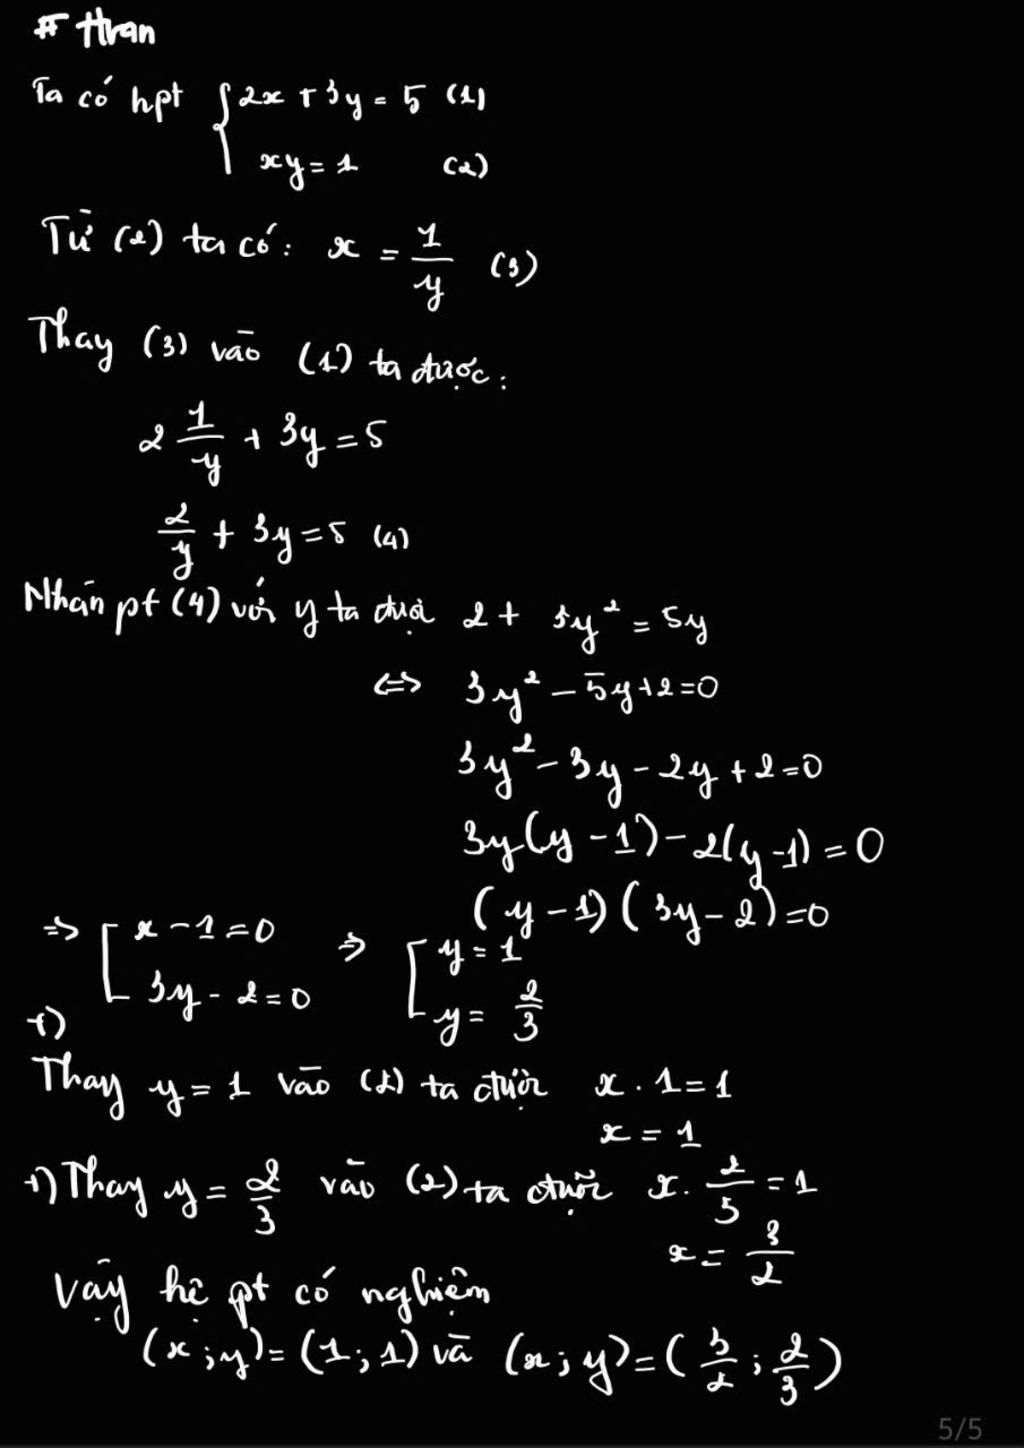 # Hran
Ta có hpt { 2x + 3y = 5 (1)
xy = 1 (2)
Từ (2) ta có: x = 1/y (3)
Thay (3) vào (1) ta được:
2 1/y + 3y = 5
2/y + 3y = 5 (4)
Nhân pt (4) với y ta được 2 + 3y² = 5y
⇔ 3y² - 5y + 2 = 0
3y² - 3y - 2y + 2 = 0
3y(y - 1) - 2(y - 1) = 0
(y - 1)(3y - 2) = 0
⇒ [ x - 1 = 0 ⇒ [ y = 1
3y - 2 = 0 y = 2/3
+)
Thay y = 1 vào (2) ta được x . 1 = 1
x = 1
+) Thay y = 2/3 vào (2) ta được x . 2/3 = 1
x = 3/2
Vậy hệ pt có nghiệm
(x ; y) = (1 ; 1) và (x ; y) = (3/2 ; 2/3)
5/5